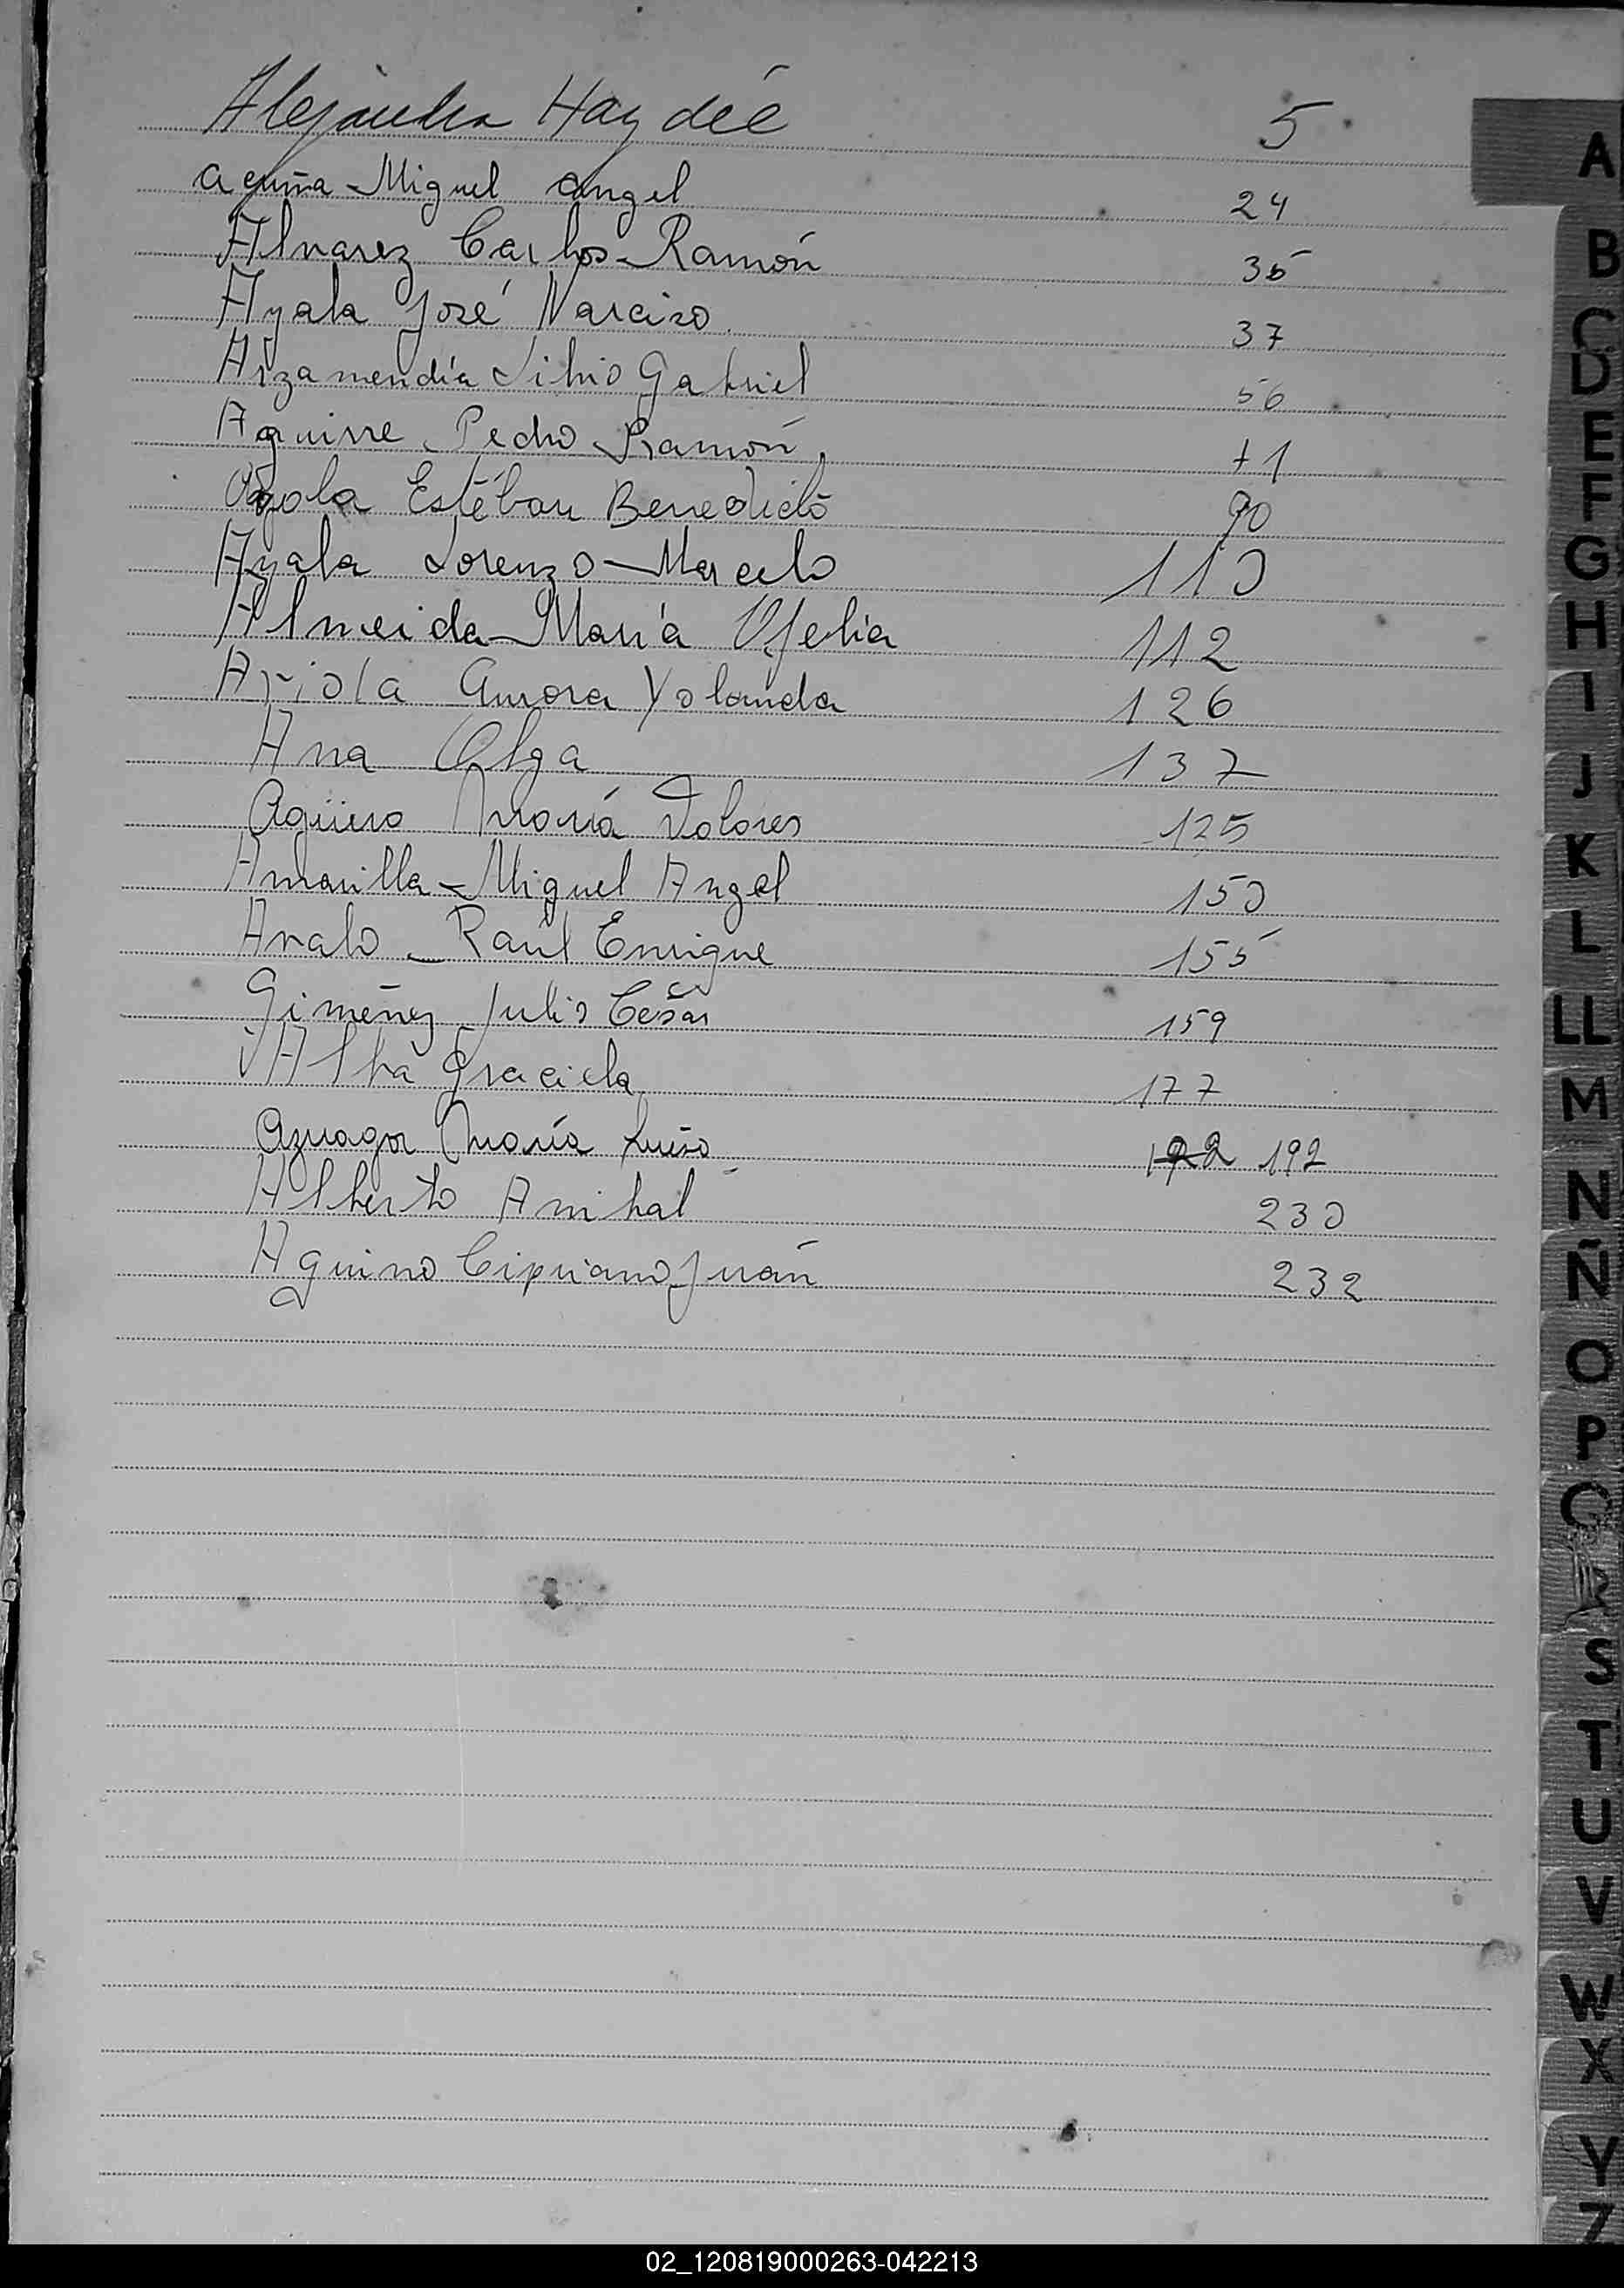 Alejandra Haydeé 5
Acuña Miguel Angel 24
Alvarez Carlos Ramón 35
Ayala José Narciso 37
Arzamendia Silvio Gabriel 56
Aguirre Pedro Ramón +1
Ayala Estéban Benedicto 90
Ayala Lorenzo Marcelo 110
Almeida María Ofelia 112
Ariola Aurora Yolanda 126
Ana Olga 137
Agüero María Dolores 125
Amarilla Miguel Angel 150
Avalo Raúl Enrique 155
Giménez Julio César 159
Alba Graciela 177
Azuaga María Luisa 192
Alberto Anibal 230
Aquino Cipriano Juán 232
A
B
C
D
E
F
G
H
I
J
K
L
LL
M
N
Ñ
O
P
Q
R
S
T
U
V
W
X
Y
Z
02_120819000263-042213